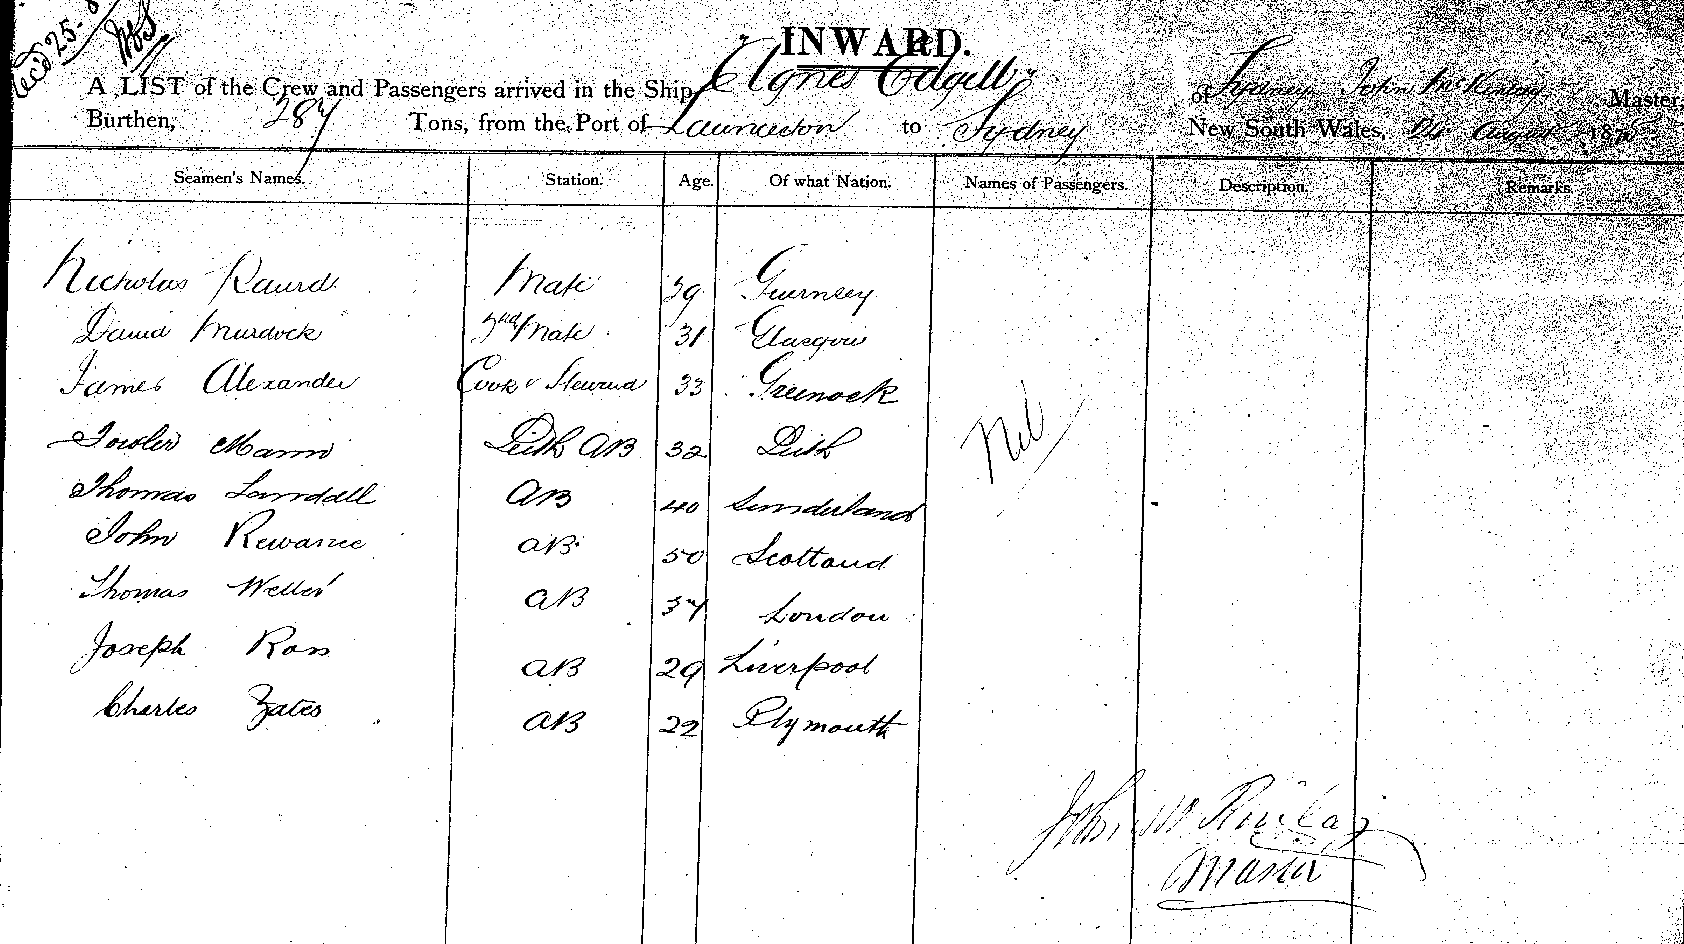 Rec'd 25-8
INWARD.
A LIST of the Crew and Passengers arrived in the Ship "Agnes Edgell" of Sydney John Master,
Burthen, 287 Tons, from the Port of Launceston to Sydney New South Wales, August 187
Seamen's Names. Station. Age. Of what Nation. Names of Passengers. Description. Remarks.
Nicholas Mate 39 Guernsey
David Murdock 2nd Mate 31 Glasgow
James Alexander Cook & Steward 33 Greenock
Mann Leith AB 32 Leith
Thomas AB 40 Sunderland
John AB 50 Scotland
Thomas Weller AB 37 London
Joseph Ross AB 29 Liverpool
Charles Yates AB 22 Plymouth
Nil
John
Master